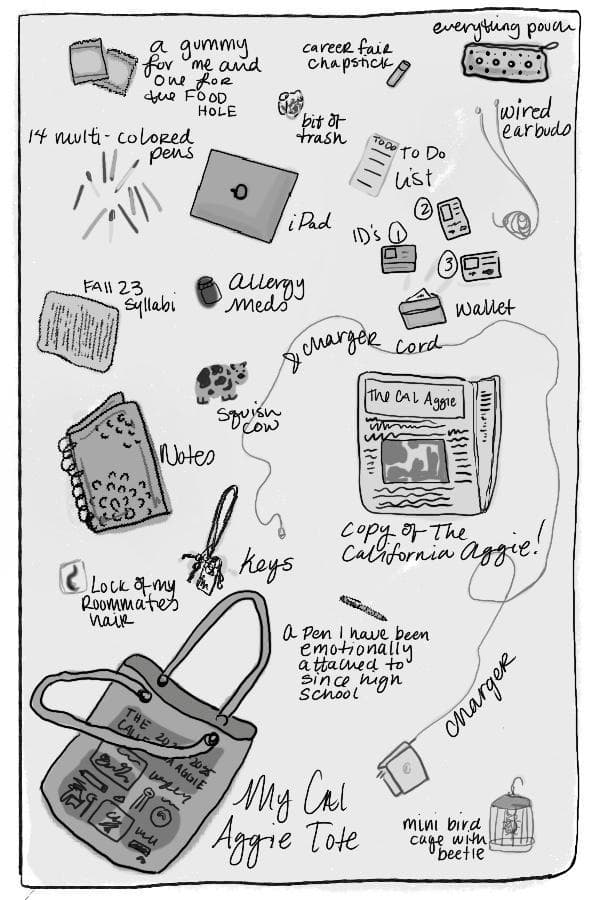 everything pouch
a gummy
for me and
one for
the FOOD
HOLE
career fair
chapstick
bit of
trash
wired
earbuds
14 multi-colored
pens
TO DO
To Do
List
iPad
ID's 1
2
3
Fall 23
Syllabi
Allergy
Meds
Wallet
charger cord
Squish
cow
The Cal Aggie
Notes
Copy of The
California Aggie!
Keys
Lock of my
Roommates
hair
a Pen I have been
emotionally
attached to
since high
school
charger
THE
AGGIE
My Cal
Aggie Tote
mini bird
cage with
beetle